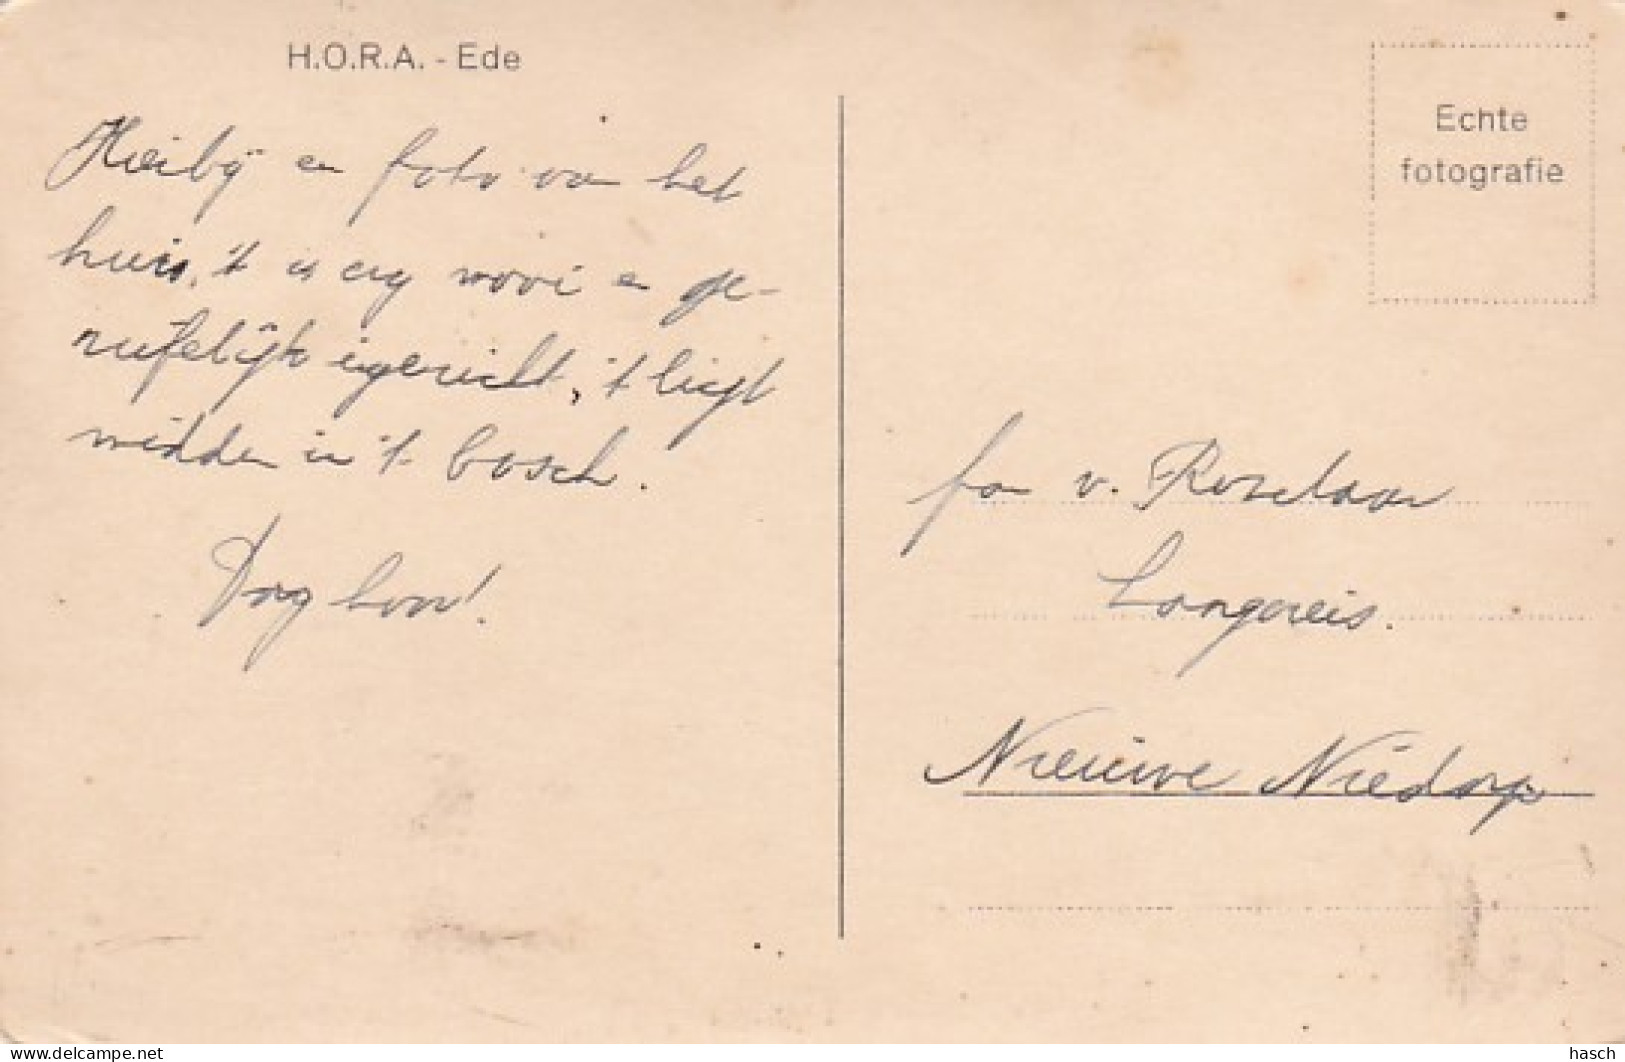 H.O.R.A. - Ede
Echte
fotografie
Hierbij en foto van het
huis, 't is erg mooi en ge-
riefelijk ingericht, 't ligt
midden in 't bosch.
Dag hoor!
fam v. Roselaar
Langereis.
Nieuwe Niedorp
hasch
www.delcampe.net